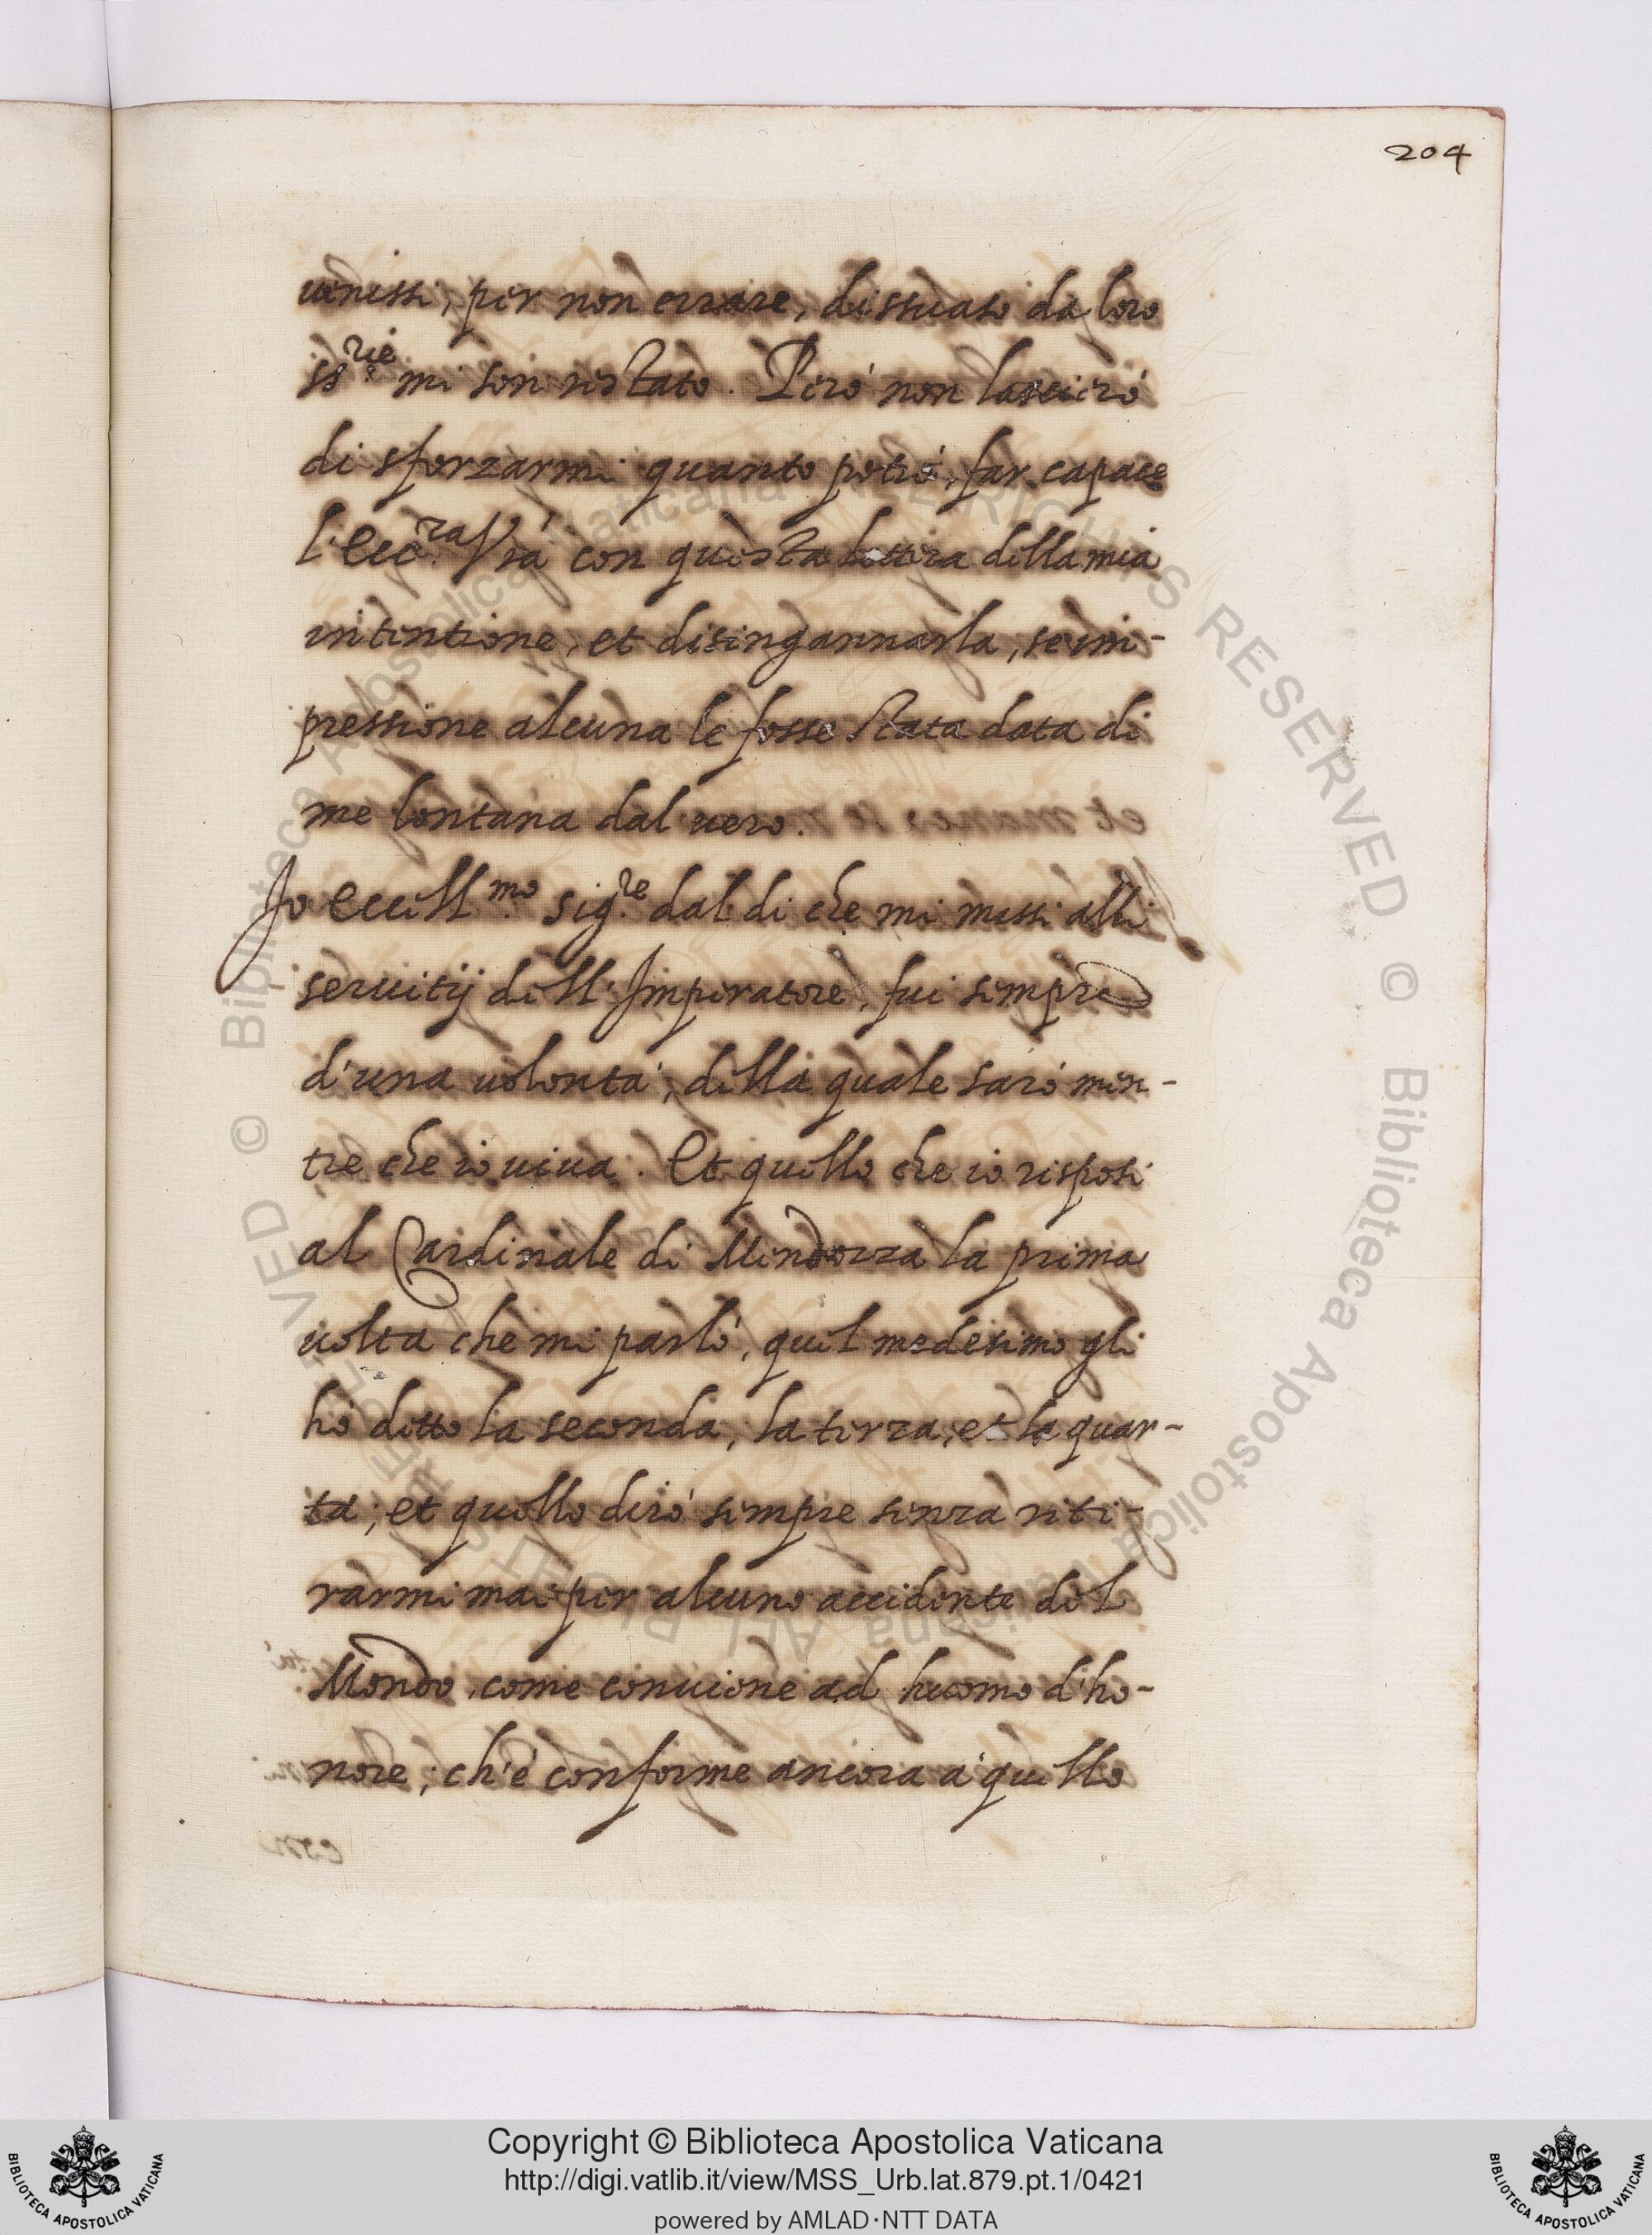 204
uenissi, per non errare, dissuaso da loro
ss.rie mi son restato. Però non lascierò
di sforzarmi quanto potrò, far capace
l'Ecc.za V'ra con questa lettera della mia
intentione, et disingannarla, se im-
pressione alcuna le fosse stata data di
me lontana dal uero.
Io Eccell.mo sig.re dal dì che mi messi alli
seruitij dell'Imperatore, fui sempre
d'una uolontà, della quale sarò men-
tre che io uiua. Et quello che io risposi
al Cardinale di Mendozza la prima
uolta che mi parlò, quel medesimo gli
hò detto la seconda, la terza, et la quar-
ta; et quello dirò sempre senza riti-
rarmi mai per alcuno accidente del
Mondo, come conuiene ad huomo d'ho-
nore; ch'è conforme ancora à quello
© Biblioteca Apostolica Vaticana ALL RIGHTS RESERVED © Biblioteca Apostolica Vaticana ALL RIGHTS RESERVED
Copyright © Biblioteca Apostolica Vaticana
http://digi.vatlib.it/view/MSS_Urb.lat.879.pt.1/0421
powered by AMLAD·NTT DATA
BIBLIOTECA APOSTOLICA VATICANA
BIBLIOTECA APOSTOLICA VATICANA